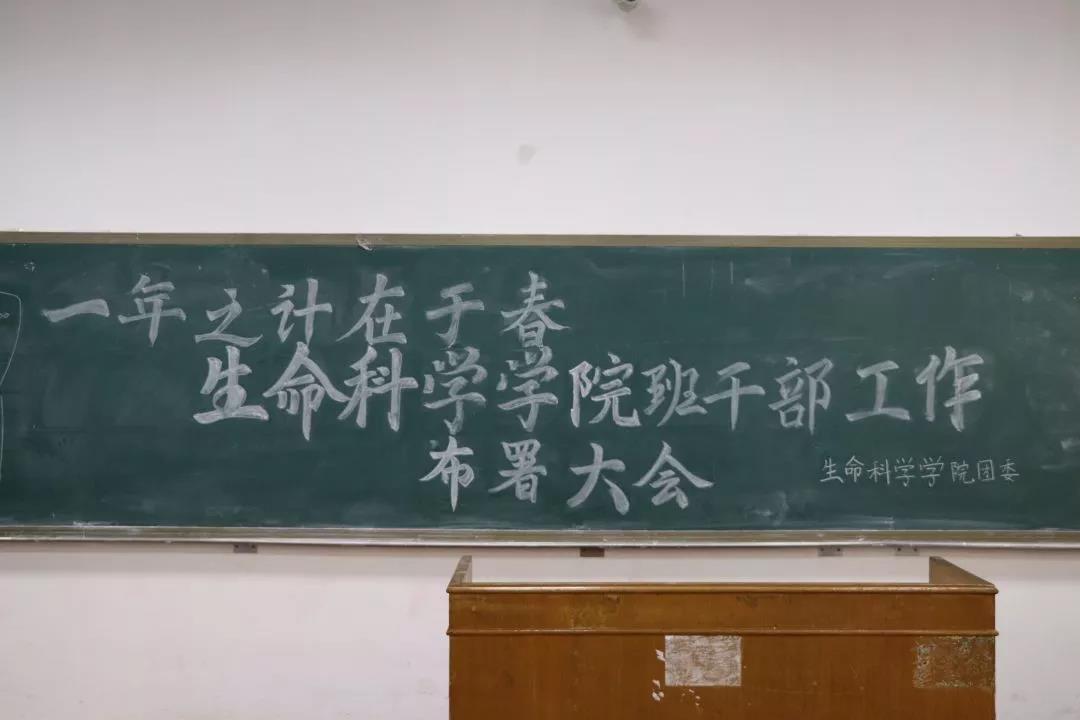 一年之计在于春
生命科学学院班干部工作
布署大会
生命科学学院团委